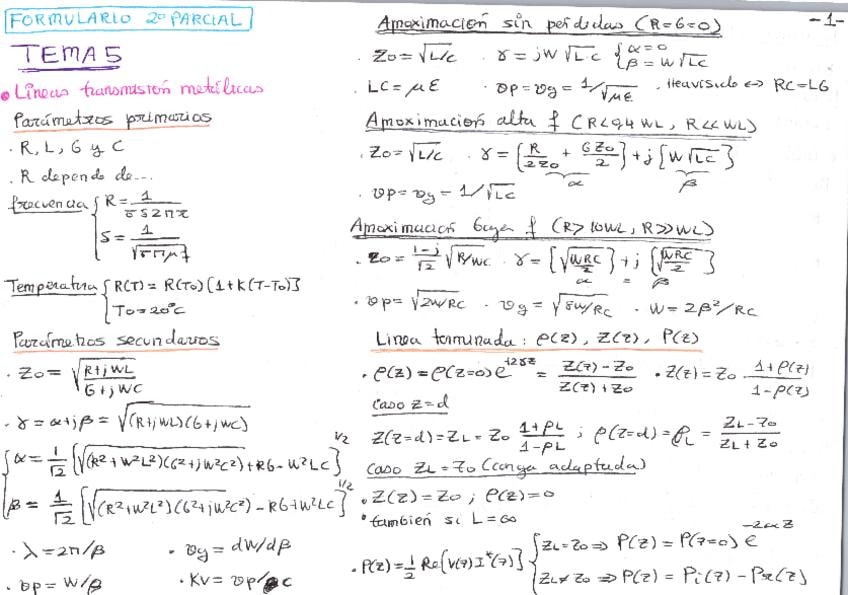 FORMULARIO 2º PARCIAL
TEMA 5
• Líneas transmisión metálicas
Parámetros primarios
· R, L, G y C
· R depende de...
frecuencia { R = 1/(σδ2πr)
δ = 1/√(σπμf)
Temperatura { R(T) = R(T0)[1+K(T-T0)]
T0 = 20ºC
Parámetros secundarios
· Z0 = √((R+jWL)/(G+jWC))
· γ = α+jβ = √((R+jWL)(G+jWC))
{ α = 1/√2 [√((R²+W²L²)(G²+jW²C²)) + RG - W²LC]^1/2
β = 1/√2 [√((R²+W²L²)(G²+jW²C²)) - RG + W²LC]^1/2
· λ = 2π/β · vg = dW/dβ
· vp = W/β · Kv = vp/c
-1-
Aproximación sin pérdidas (R=G=0)
· Z0 = √(L/C) · γ = jW√(LC) { α = 0
β = W√(LC)
· LC = με · vp = vg = 1/√(με) · Heaviside ⇔ RC = LG
Aproximación alta f (R<0,4WL, R<<WL)
· Z0 = √(L/C) · γ = [R/(2Z0) + GZ0/2] + j[W√(LC)]
α β
· vp = vg = 1/√(LC)
Aproximación baja f (R>10WL, R>>WL)
· Z0 = (1-j)/√2 √(R/WC) · γ = [√(WRC/2)] + j[√(WRC/2)]
α = β
· vp = √(2W/RC) · vg = √(8W/RC) · W = 2β²/RC
Línea terminada: ρ(z), Z(z), P(z)
· ρ(z) = ρ(z=0) e^(+2γz) = (Z(z)-Z0)/(Z(z)+Z0) · Z(z) = Z0 · (1+ρ(z))/(1-ρ(z))
Caso z=d
Z(z=d) = ZL = Z0 (1+ρL)/(1-ρL) ; ρ(z=d) = ρL = (ZL-Z0)/(ZL+Z0)
Caso ZL = Z0 (carga adaptada)
· Z(z) = Z0 ; ρ(z) = 0
· también si L = ∞
· P(z) = 1/2 Re{V(z) I*(z)} { ZL = Z0 ⇒ P(z) = P(z=0) e^(-2αz)
ZL ≠ Z0 ⇒ P(z) = Pi(z) - Pr(z)